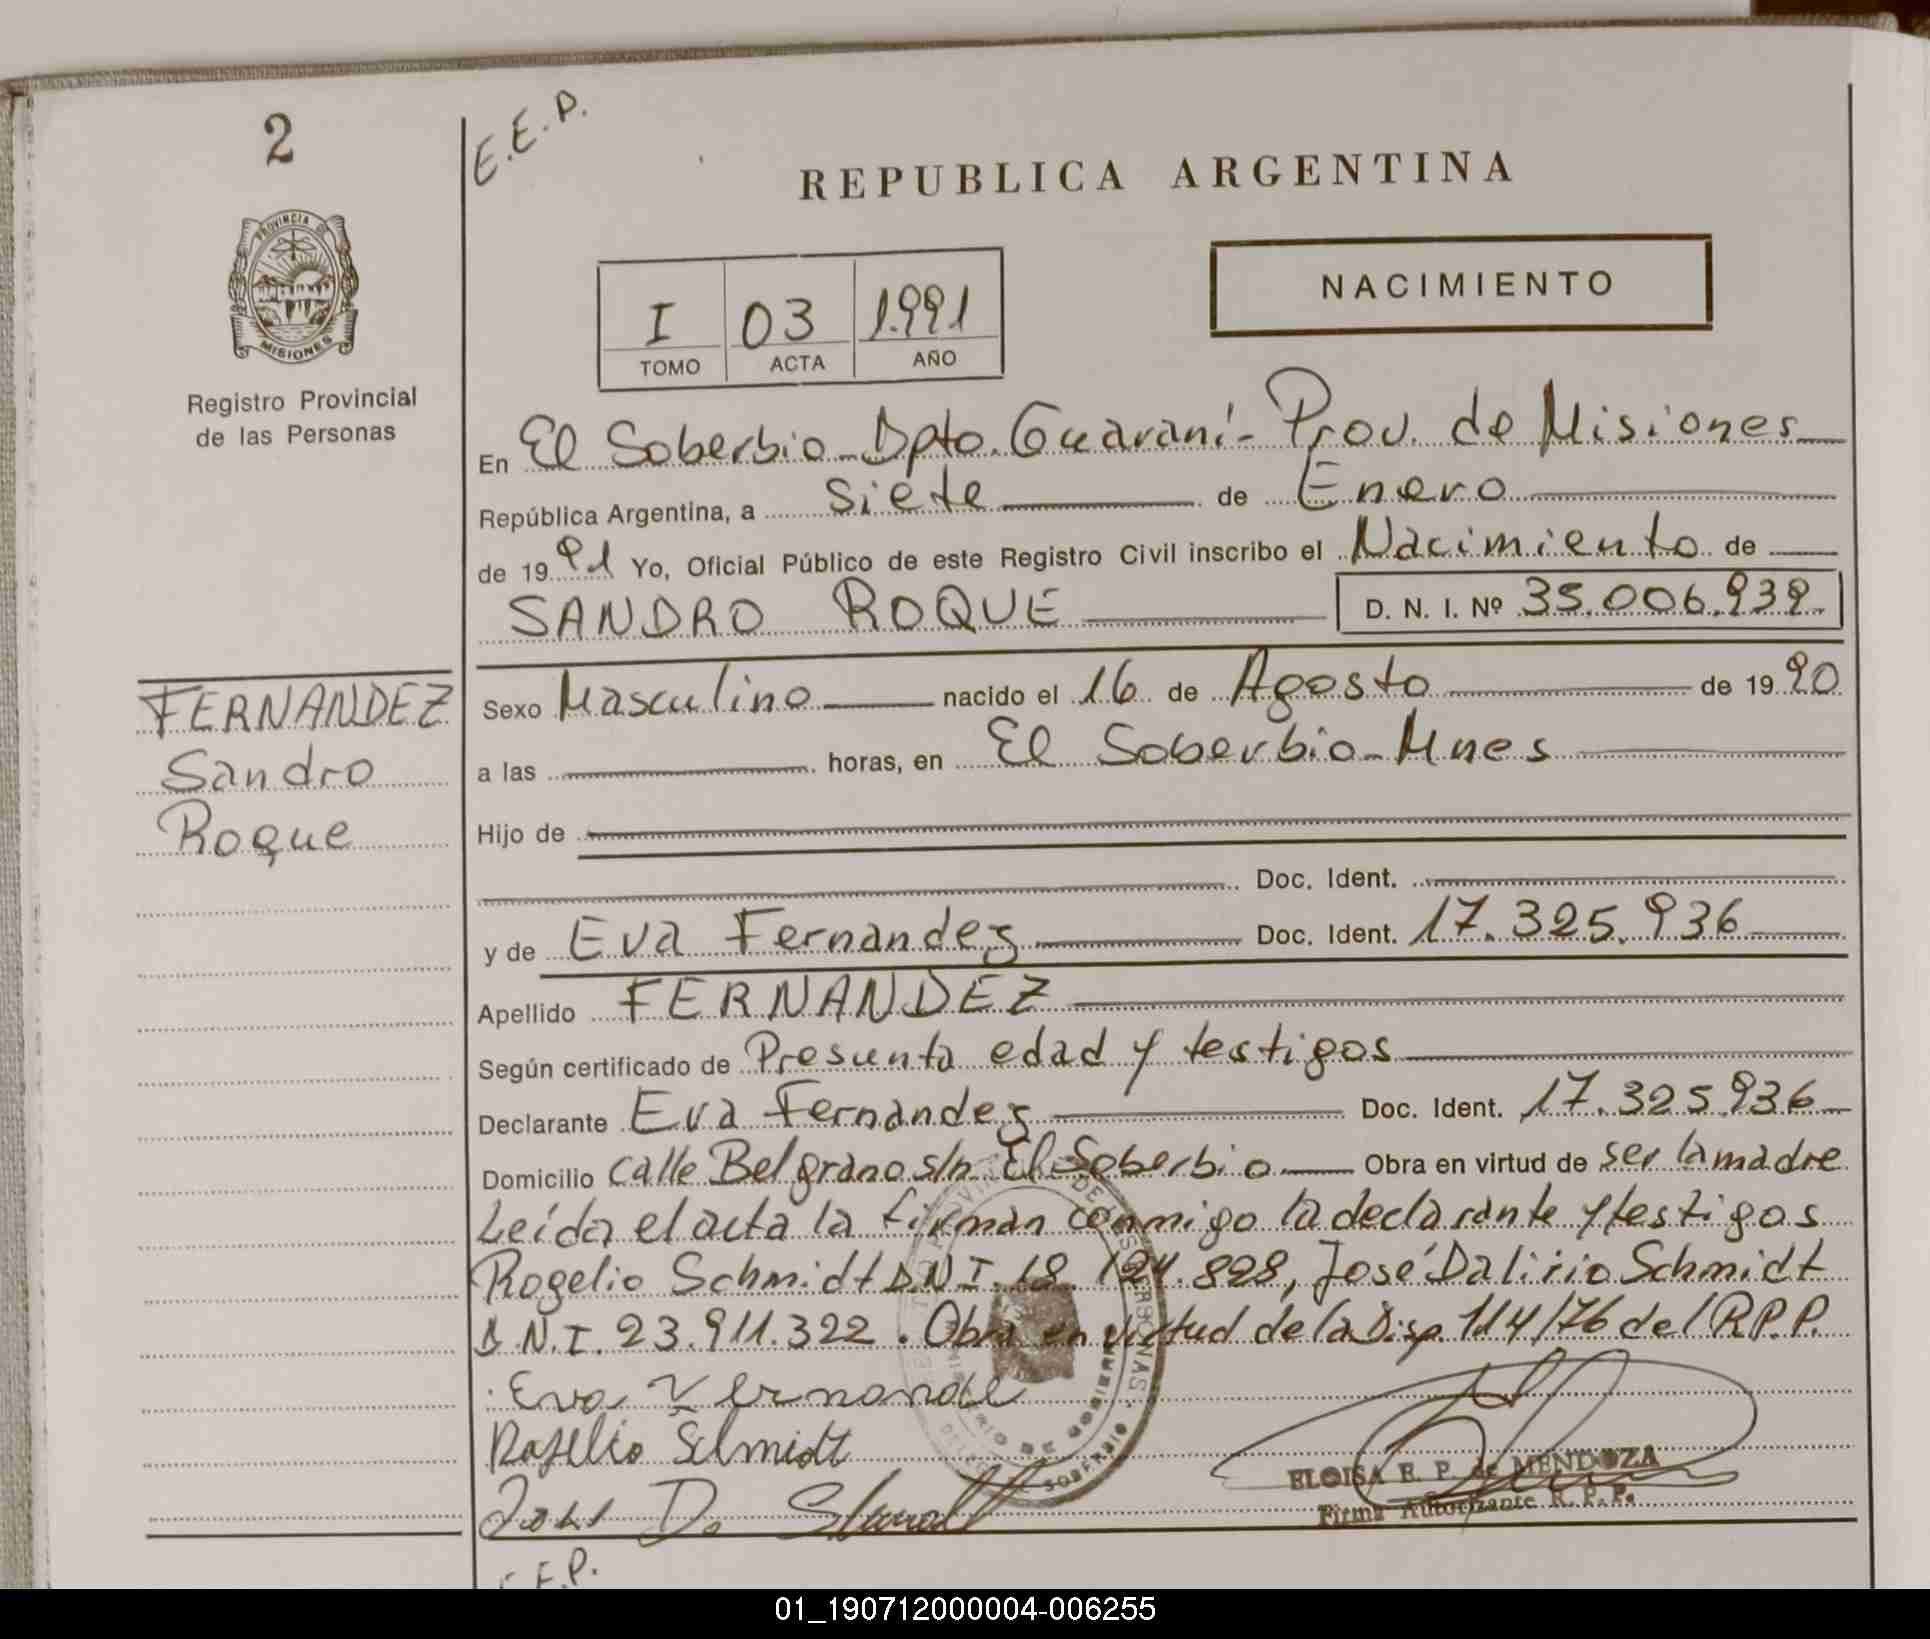 2
E.E.P.
REPUBLICA ARGENTINA
PROVINCIA DE
MISIONES
Registro Provincial
de las Personas
I 03 1.991
TOMO ACTA AÑO
NACIMIENTO
En El Soberbio - Dpto. Guaraní - Prov. de Misiones
República Argentina, a siete de Enero
de 1991 Yo, Oficial Público de este Registro Civil inscribo el Nacimiento de
SANDRO ROQUE D. N. I. Nº 35.006.939
FERNANDEZ
Sandro
Roque
Sexo Masculino nacido el 16 de Agosto de 1990
a las horas, en El Soberbio - Mnes
Hijo de
Doc. Ident.
y de Eva Fernandez Doc. Ident. 17.325.936
Apellido FERNANDEZ
Según certificado de Presunta edad y testigos
Declarante Eva Fernandez Doc. Ident. 17.325.936
Domicilio calle Belgrano s/n El Soberbio Obra en virtud de ser la madre
Leída el acta la firman conmigo la declarante y testigos
Rogelio Schmidt D.N.I. 18.124.898, José Dalirio Schmidt
D.N.I. 23.911.322. Obra en virtud de la Disp. 114/76 del R.P.P.
Eva Fernande
Rogelio Schmidt
José D. Schmidt
ELOISA E. P. de MENDOZA
Firma Autorizante R. P. P.
E.P.
01_190712000004-006255